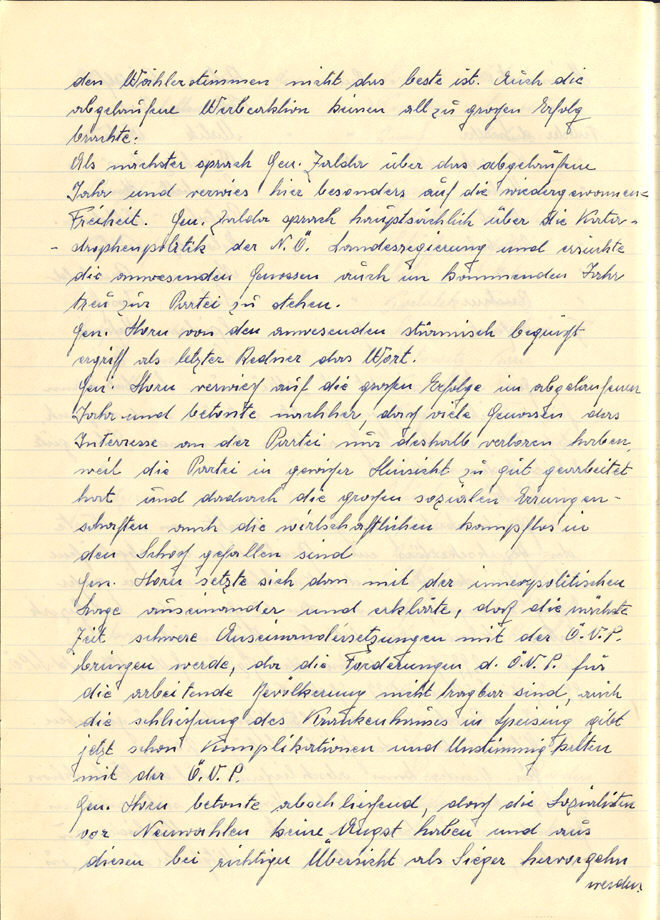 den Wählerstimmen nicht das beste ist. Auch die
abgelaufene Werbeaktion keinen allzu großen Erfolg
brachte.
Als nächster sprach Gen. Zalda über das abgelaufene
Jahr und verwies hier besonders auf die wiedergewonnene
Freiheit. Gen. Zalda sprach hauptsächlich über die Kata-
strophenpolitik der N.Ö. Landesregierung und ersuchte
die anwesenden Genossen auch im kommenden Jahr
treu zur Partei zu stehen.
Gen. Horn von den anwesenden stürmisch begrüßt
ergriff als letzter Redner das Wort.
Gen. Horn verwieß auf die großen Erfolge im abgelaufenen
Jahr und betonte nachher, daß viele Genossen das
Interesse an der Partei nur deshalb verloren haben,
weil die Partei in gewißer Hinsicht zu gut gearbeitet
hat und dadurch die großen sozialen Errungen-
schaften auch die wirtschaftlichen kampflos in
den Schoß gefallen sind
Gen. Horn setzte sich dan mit der innenpolitischen
Lage auseinander und erklärte, daß die nächste
Zeit schwere Auseinandersetzungen mit der Ö.V.P.
bringen werde, da die Forderungen d. Ö.V.P. für
die arbeitende Bevölkerung nicht tragbar sind, auch
die schließung des Krankenhauses in Speising gibt
jetzt schon Komplikationen und Unstimmigkeiten
mit der Ö.V.P.
Gen. Horn betonte abschließend, daß die Sozialisten
vor Neuwahlen keine Angst haben und aus
diesen bei richtiger Übersicht als Sieger hervorgehn
werden.